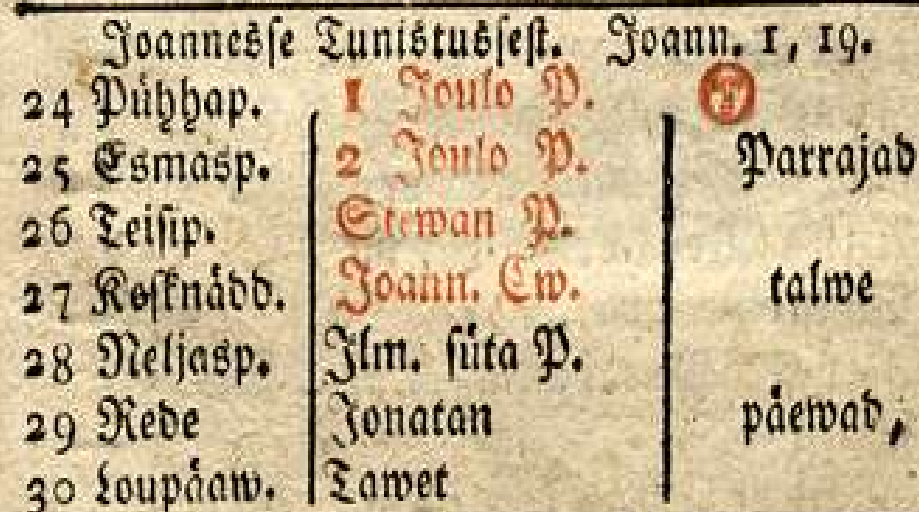 Joannesse Tunistussest. Joann. 1, 19.
24 Pühhap. 1 Joulo P.
25 Esmasp. 2 Joulo P. Parrajad
26 Teisip. Stewan P.
27 Kesknädd. Joann. Ew. talwe
28 Neljasp. Ilm. süta P.
29 Rede Jonatan päewad,
30 Loupääw. Tawet